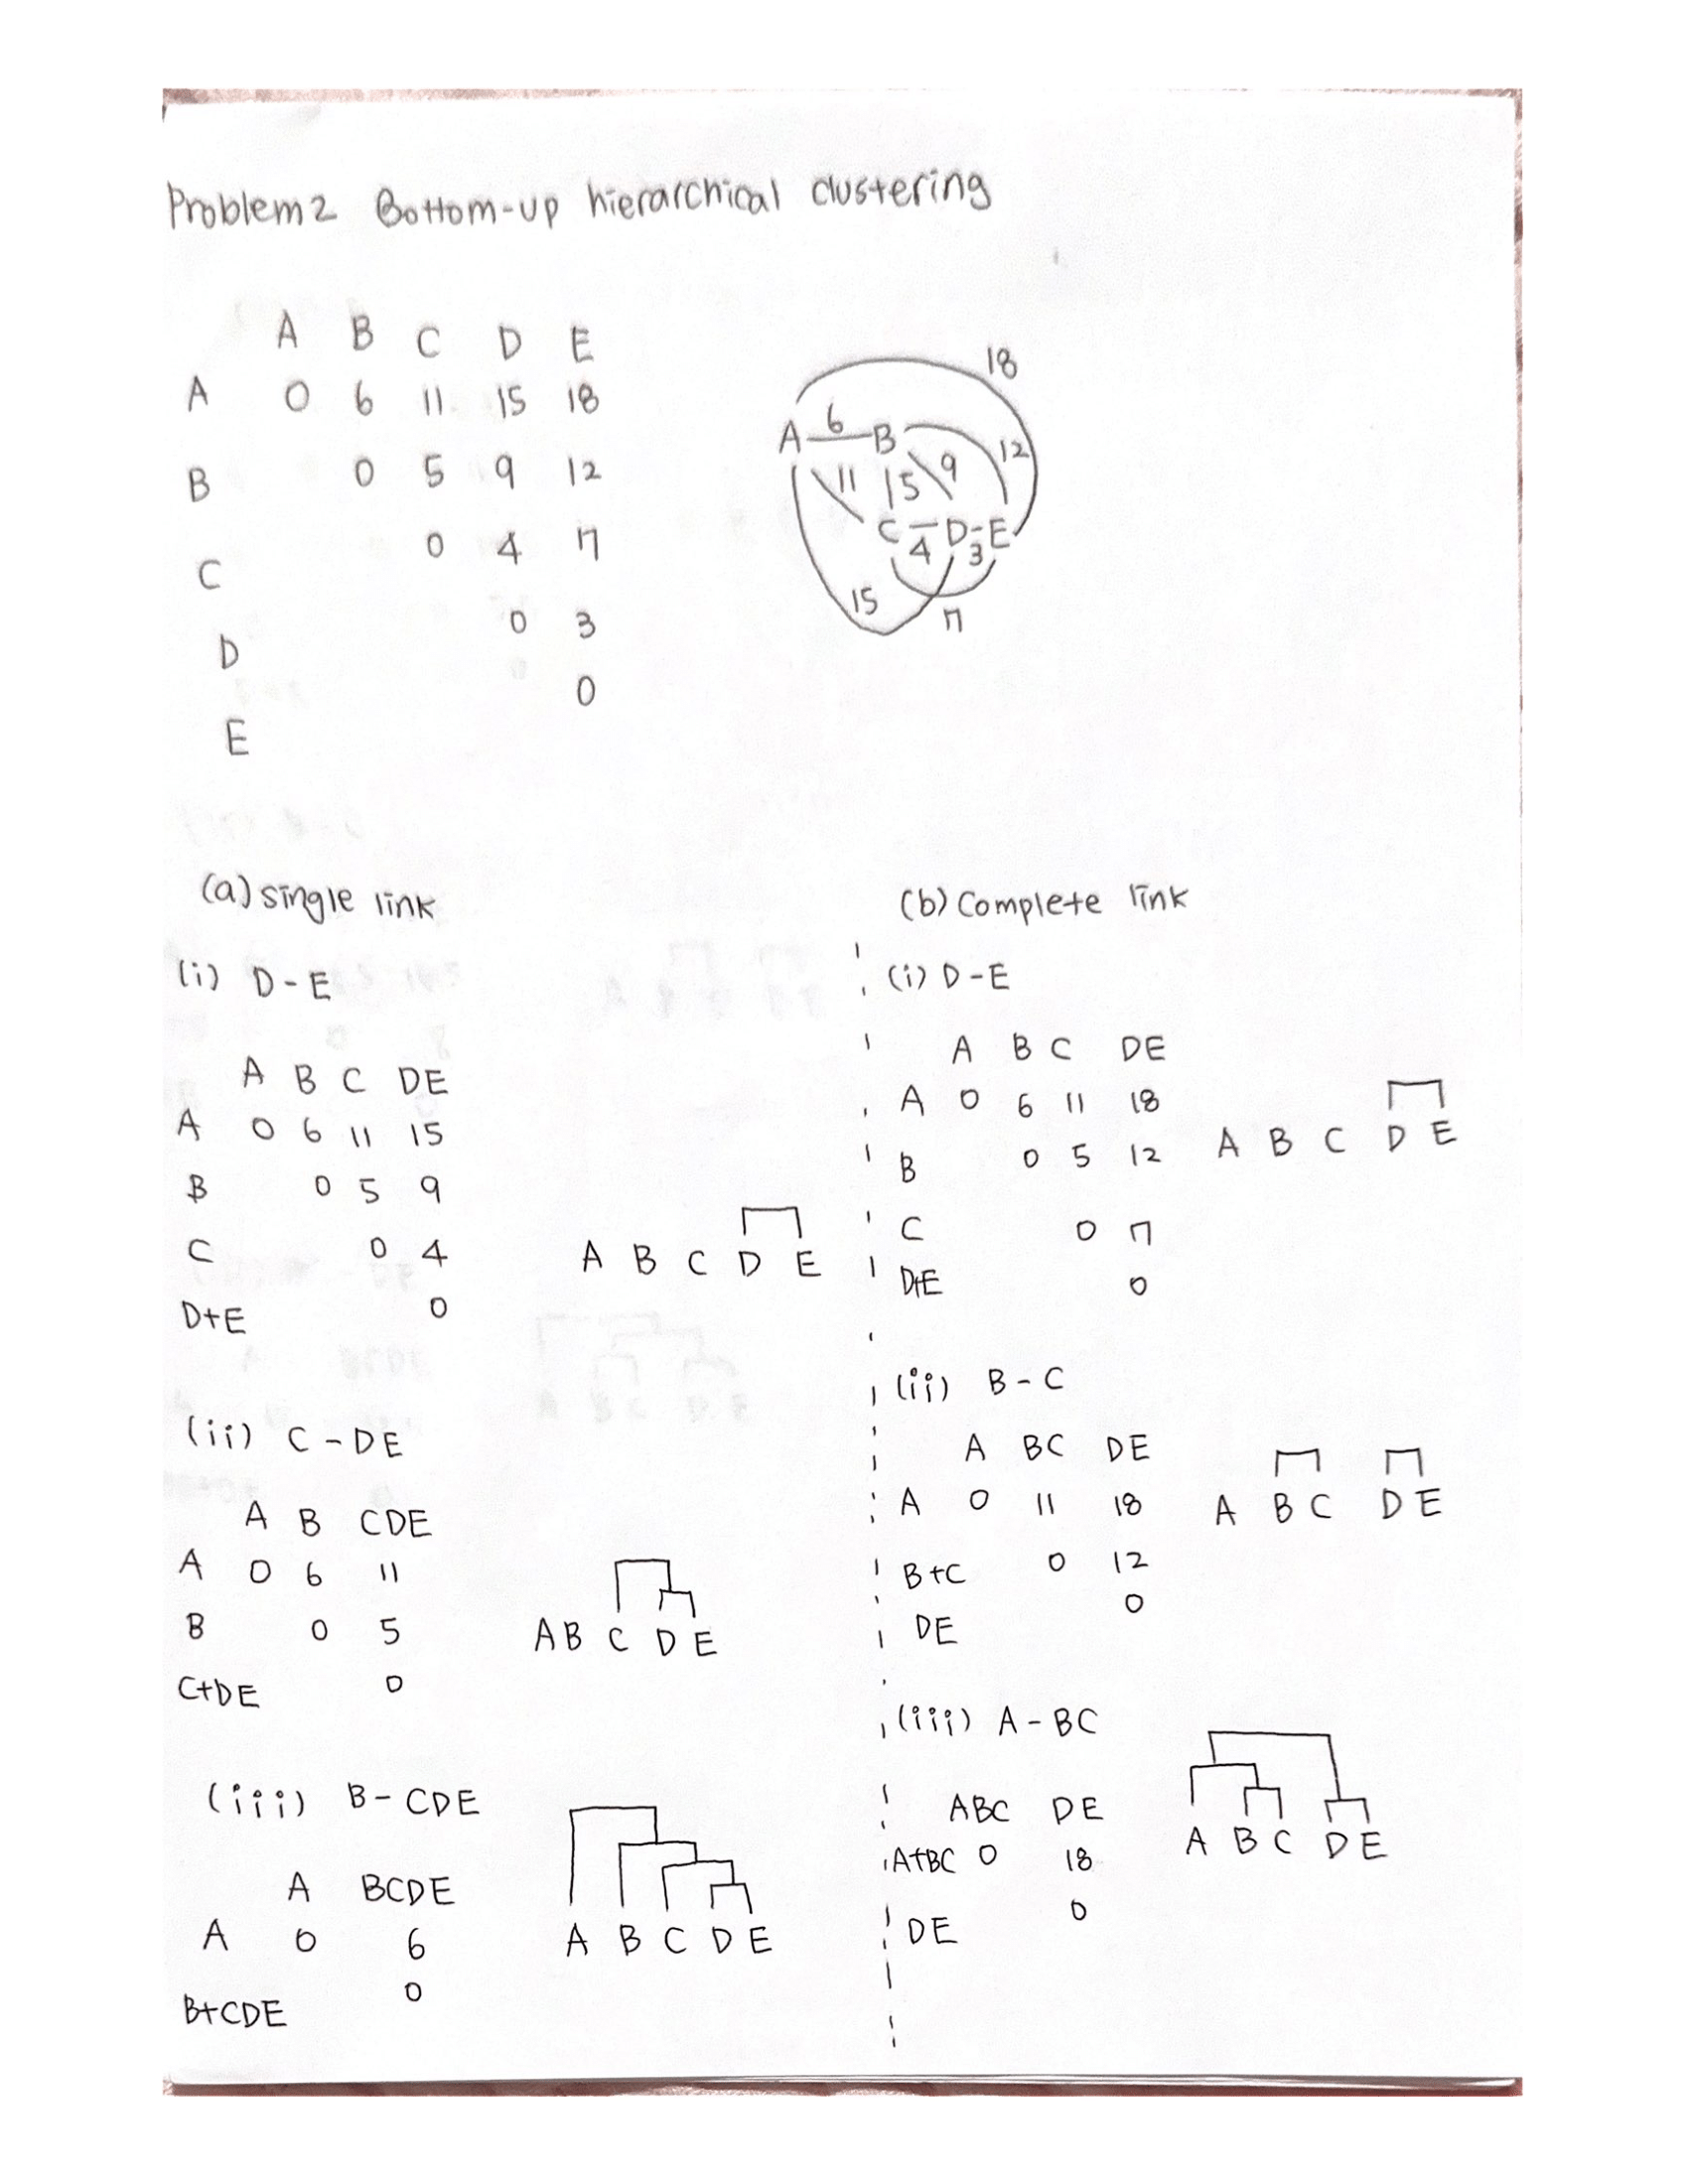 Problem2 Bottom-up hierarchical clustering
A B C D E
A 0 6 11 15 18
B 0 5 9 12
C 0 4 7
D 0 3
E 0
18
A 6 B
11 5 9 12
C 4 D 3 E
15 7
(a) single link
(i) D-E
A B C DE
A 0 6 11 15
B 0 5 9
C 0 4
D+E 0
A B C D E
(ii) C-DE
A B CDE
A 0 6 11
B 0 5
C+DE 0
A B C D E
(iii) B-CDE
A BCDE
A 0 6
B+CDE 0
A B C D E
(b) Complete link
(i) D-E
A B C DE
A 0 6 11 18
B 0 5 12
C 0 7
D+E 0
A B C D E
(ii) B-C
A BC DE
A 0 11 18
B+C 0 12
DE 0
A B C D E
(iii) A-BC
ABC DE
A+BC 0 18
DE 0
A B C D E